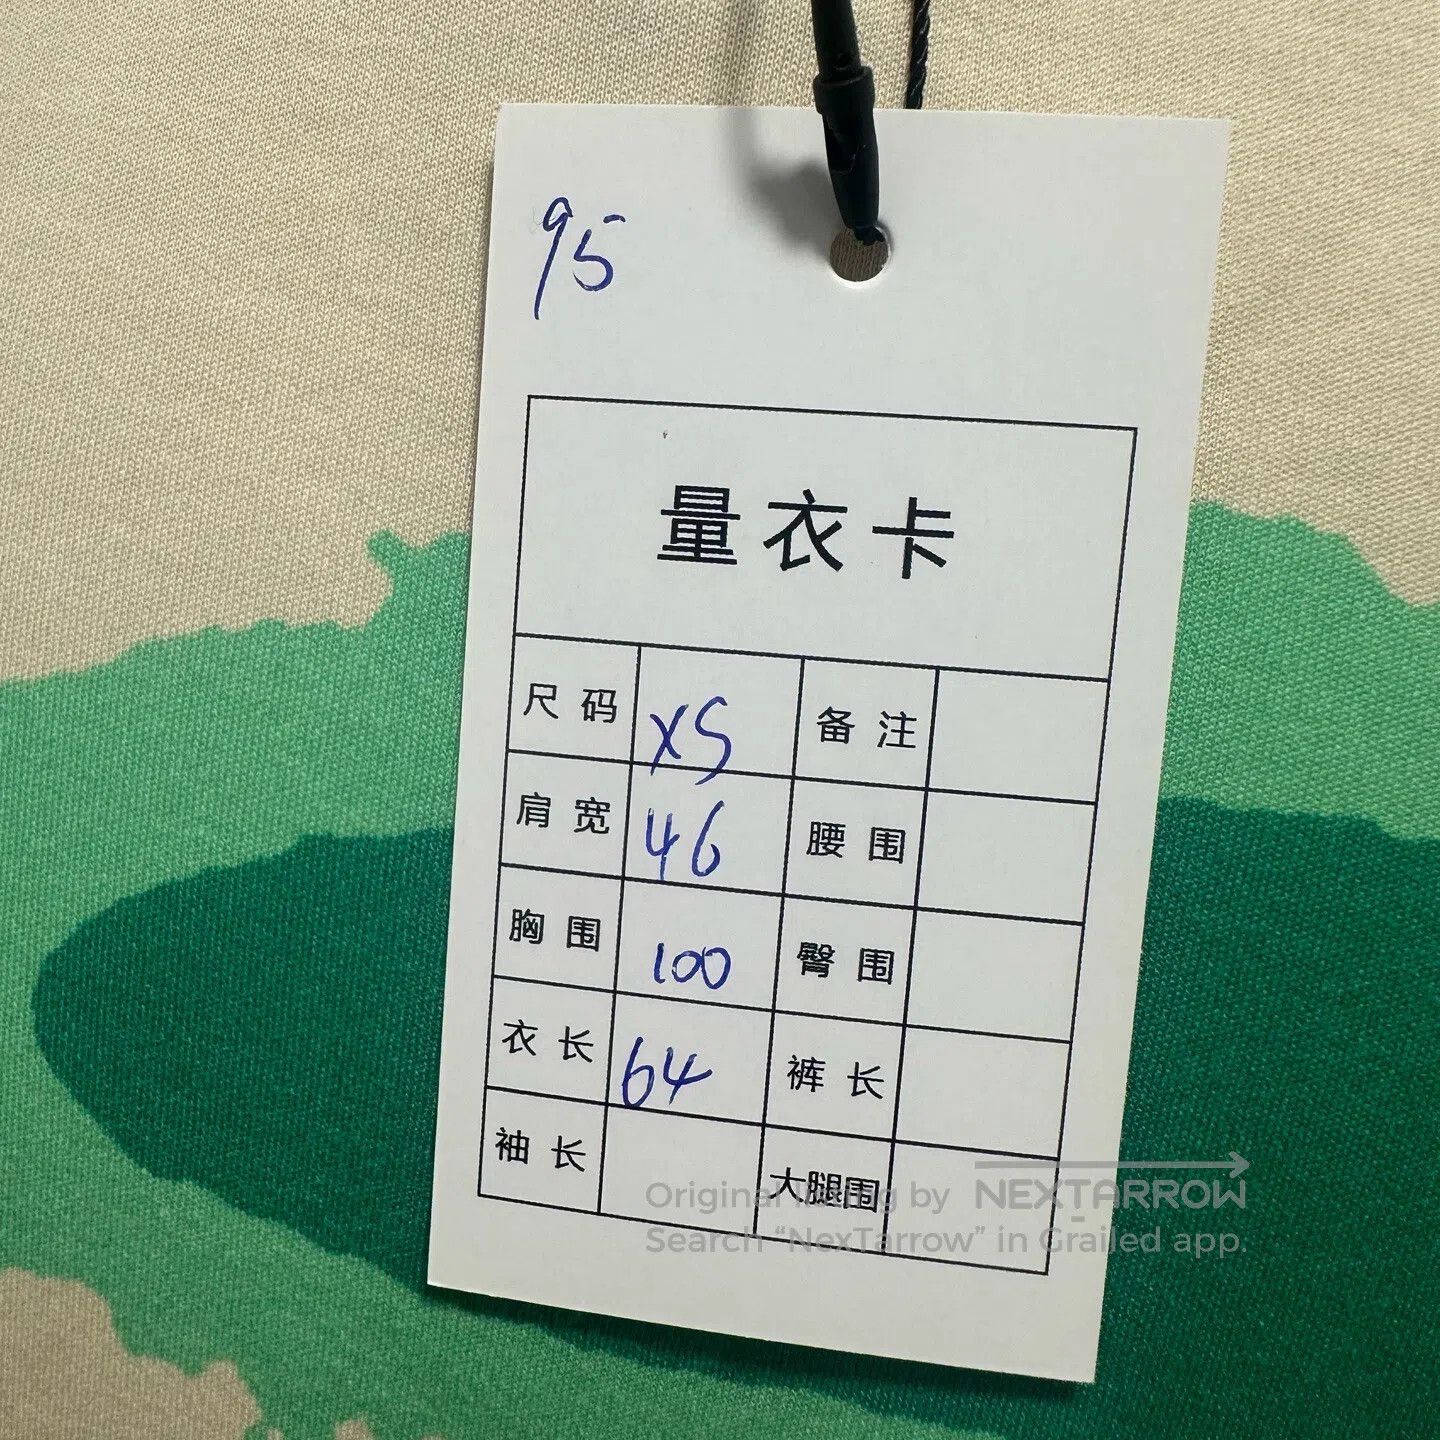 95
量衣卡
尺码 XS 备注
肩宽 46 腰围
胸围 100 臀围
衣长 64 裤长
袖长 大腿围
Original listing by NEXTARROW
Search “NexTarrow” in Grailed app.